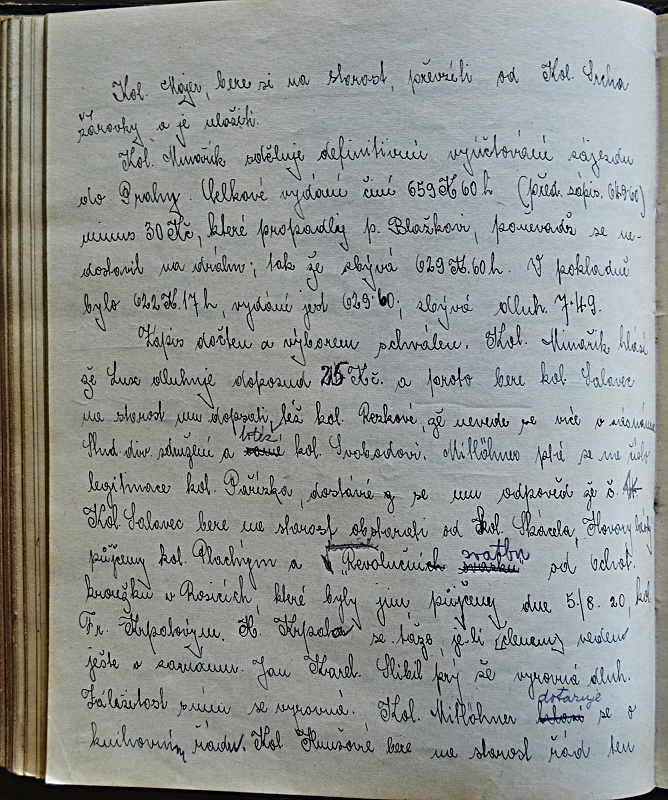 Kol. Majer, bere si na starost, převzíti od Kol. Srcha
žárovky, a je uložiti.
Kol. Minařík sděluje definitivní vyúčtování zájezdu
do Prahy. Celkové vydání činí 659 K 60 h (před. zápis. 629 60)
minus 30 Kč, které propadly p. Blažkovi, poněvadž se ne-
dostavil na dráhu; tak že zbývá 629 K. 60 h. V pokladně
bylo 622 K. 17 h, vydání jest 629·60, zbývá dluh. 7·49.
Zápis dočten a výborem schválen. Kol. Minařík hlásí
že Lux dluhuje doposud 25 Kč. a proto bere kol. Salavec
na starost mu dopsati, též kol. Rezkové, že nevede se více v
Stud. div. sdružení a totéž kol. Svobodovi. Mitlöhner ptá se na
legitimace kol. Pařízka, dostává se mu odpověď že
Kol. Salavec bere na starost obstarati od kol. Skácela, Hovory
půjčeny kol. Plachým a „Revoluční svatbu od Ochot.
kroužku v Rosicích, které byly jim půjčeny dne 5/8. 20, kol.
Fr. Krpalovým. K. Krpal se táže, je-li členem veden
ještě v seznamu. Jan Karel. Slíbil prý že vyrovná dluh.
Záležitost s ním se vyrovná. Kol. Mitlöhner dotazuje se o
knihovním řádu. Kol bere na starost řád ten